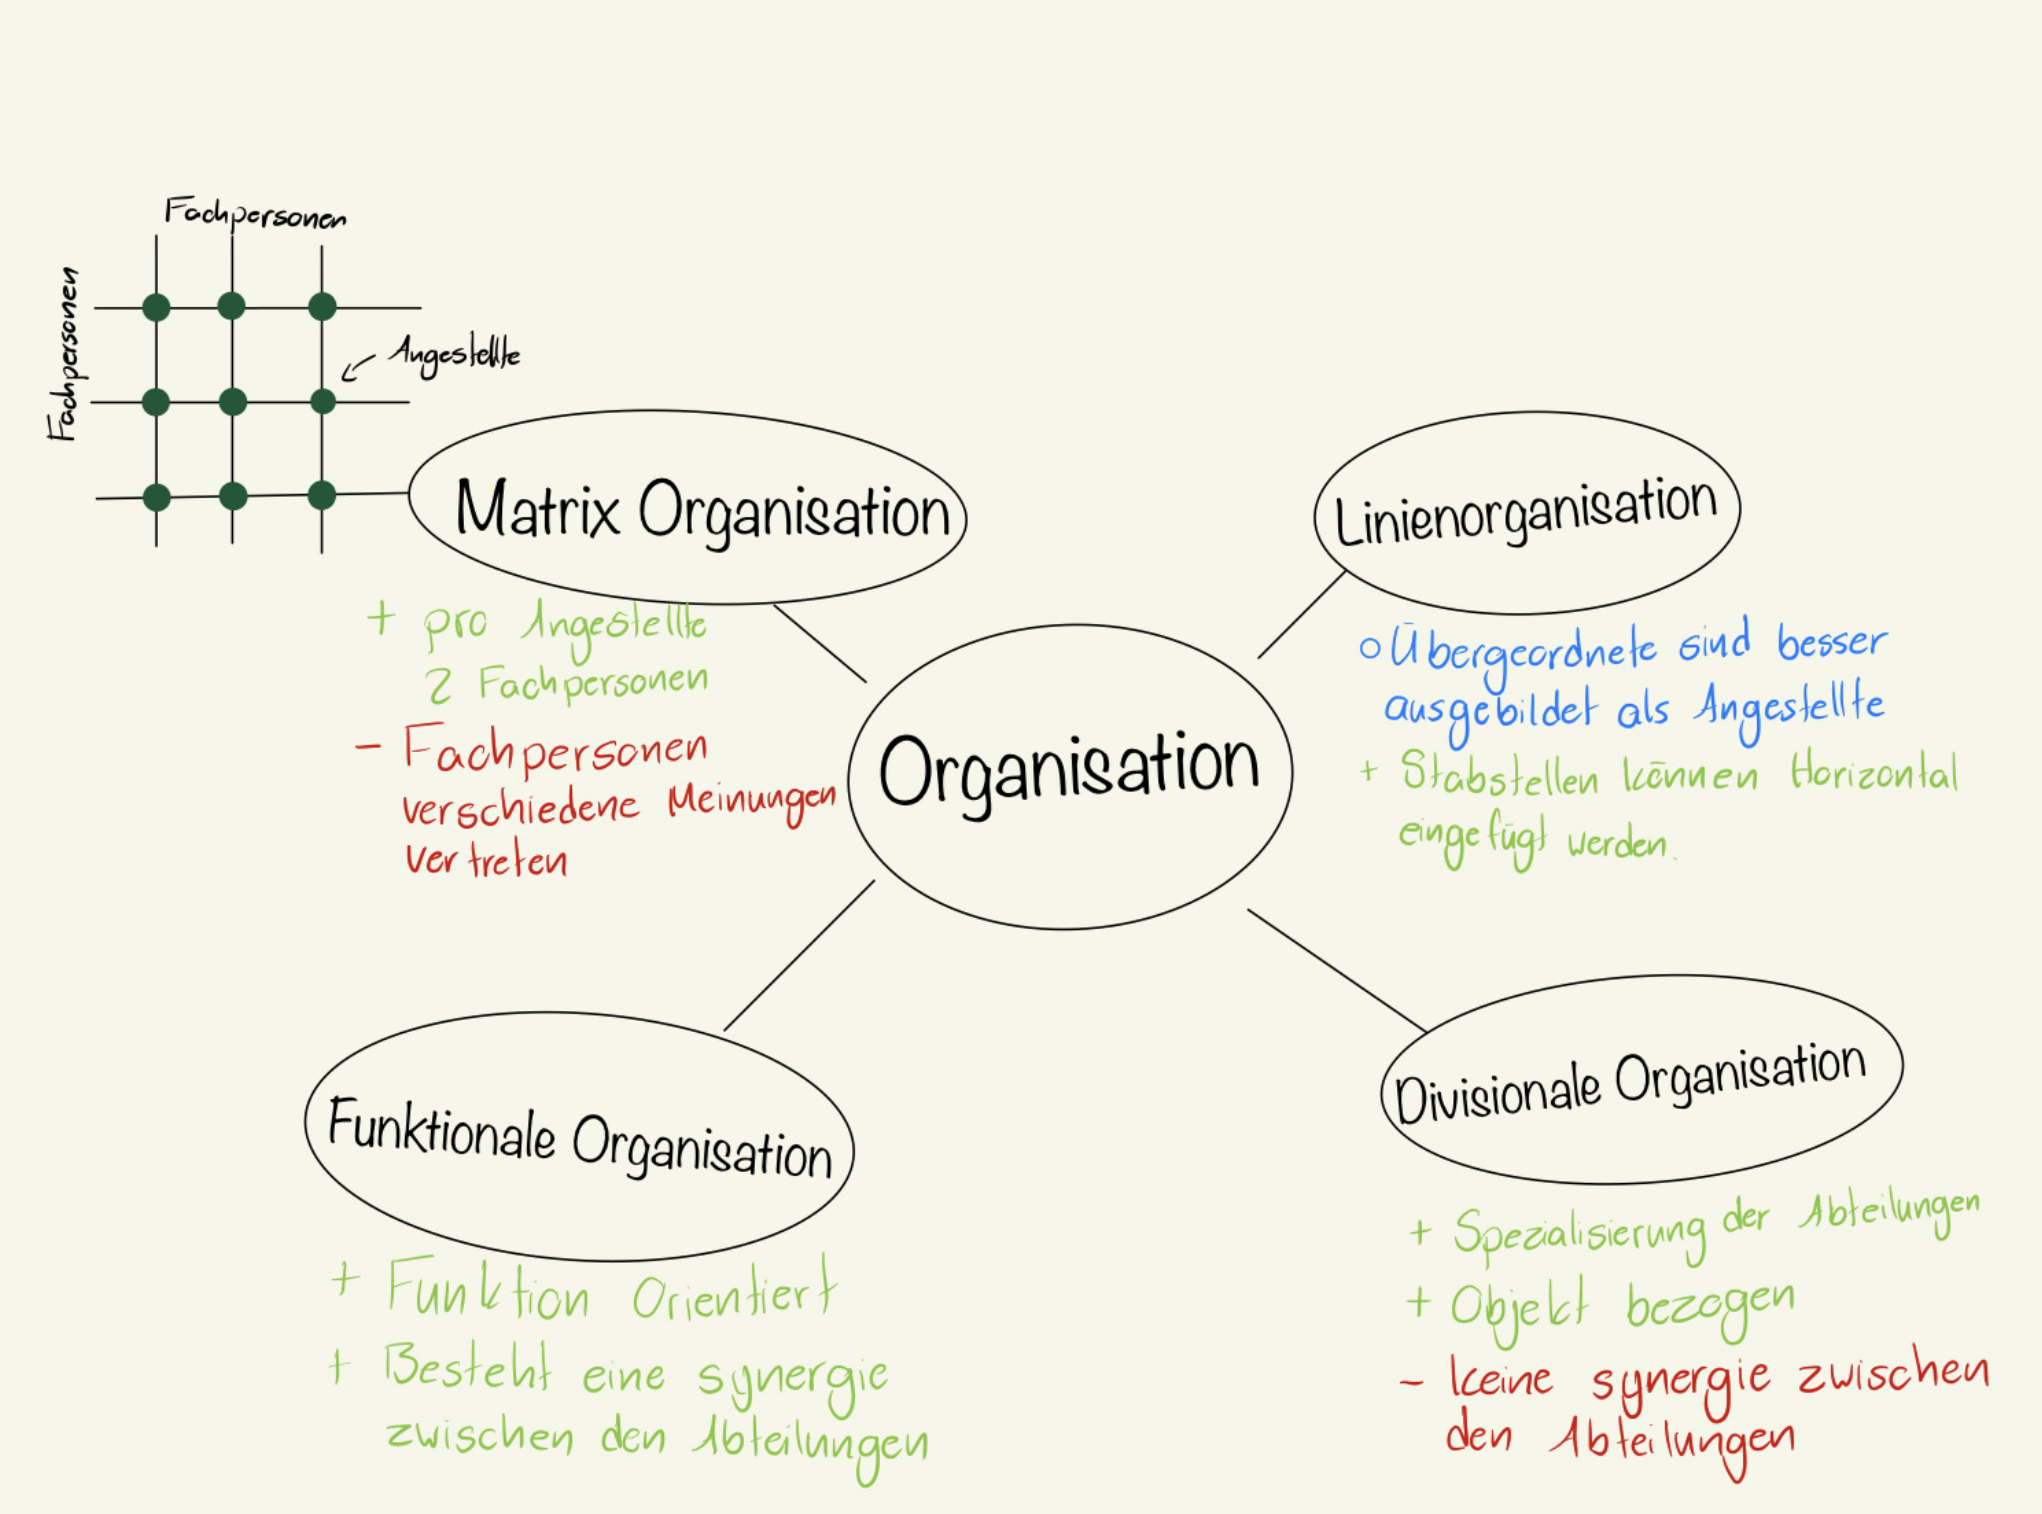 Fachpersonen
Fachpersonen
Angestellte
Matrix Organisation
+ pro Angestellte
2 Fachpersonen
- Fachpersonen
verschiedene Meinungen
vertreten
Linienorganisation
o Übergeordnete sind besser
ausgebildet als Angestellte
+ Stabstellen können Horizontal
eingefügt werden.
Organisation
Funktionale Organisation
+ Funktion Orientiert
+ Besteht eine synergie
zwischen den Abteilungen
Divisionale Organisation
+ Spezialisierung der Abteilungen
+ Objekt bezogen
- keine synergie zwischen
den Abteilungen